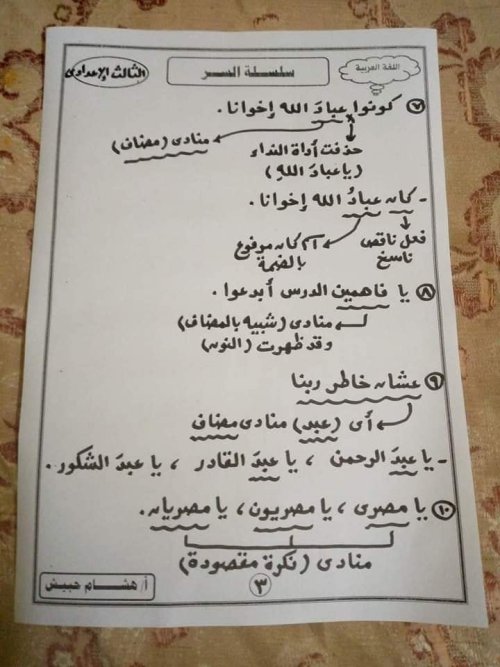 اللغة العربية
سلسلة السر
الثالث الإعدادى
٧ كونوا عبادَ الله إخوانا .
منادى (مضاف)
حذفت أداة النداء
(يا عباد الله)
- كان عبادُ الله إخوانا .
فعل ناقص
ناسخ
اسم كان مرفوع
بالضمة
٨ يا فاهمين الدرس أبدعوا .
منادى (شبيه بالمضاف)
وقد ظهرت (النون)
٩ عشان خاطر ربنا
أى (عبد) منادى مضاف
- يا عبدَ الرحمن ، يا عبدَ القادر ، يا عبدَ الشكور .
١٠ يا مصرى ، يا مصريون ، يا مصريان .
منادى (نكرة مقصودة)
٣
أ/ هشام حبيش